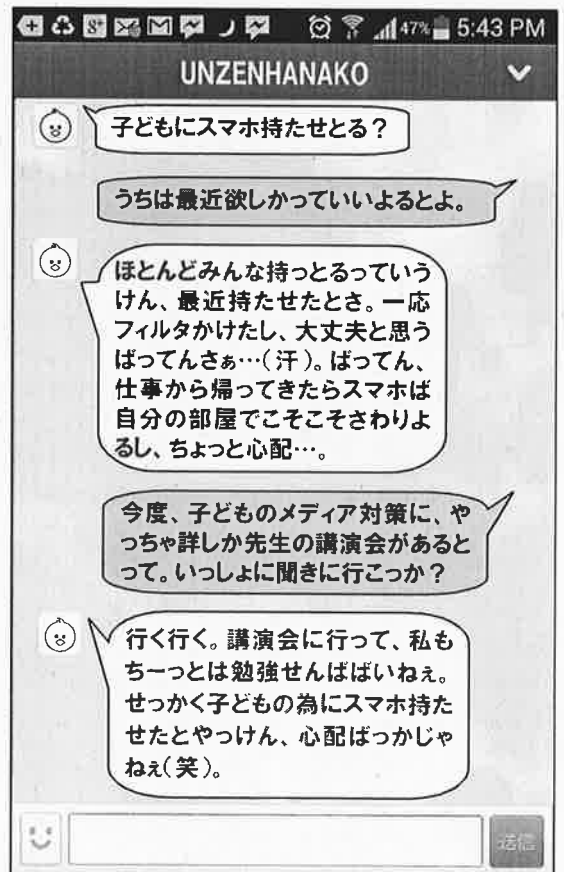 47% 5:43 PM
UNZENHANAKO
子どもにスマホ持たせとる？
うちは最近欲しかっていいよるとよ。
ほとんどみんな持っとるっていう
けん、最近持たせたとさ。一応
フィルタかけたし、大丈夫と思う
ばってんさぁ…(汗)。ばってん、
仕事から帰ってきたらスマホば
自分の部屋でこそこそさわりよ
るし、ちょっと心配…。
今度、子どものメディア対策に、や
っちゃ詳しか先生の講演会があると
って。いっしょに聞きに行こっか？
行く行く。講演会に行って、私も
ち～っとは勉強せんばばいねぇ。
せっかく子どもの為にスマホ持た
せたとやっけん、心配ばっかじゃ
ねぇ(笑)。
送信